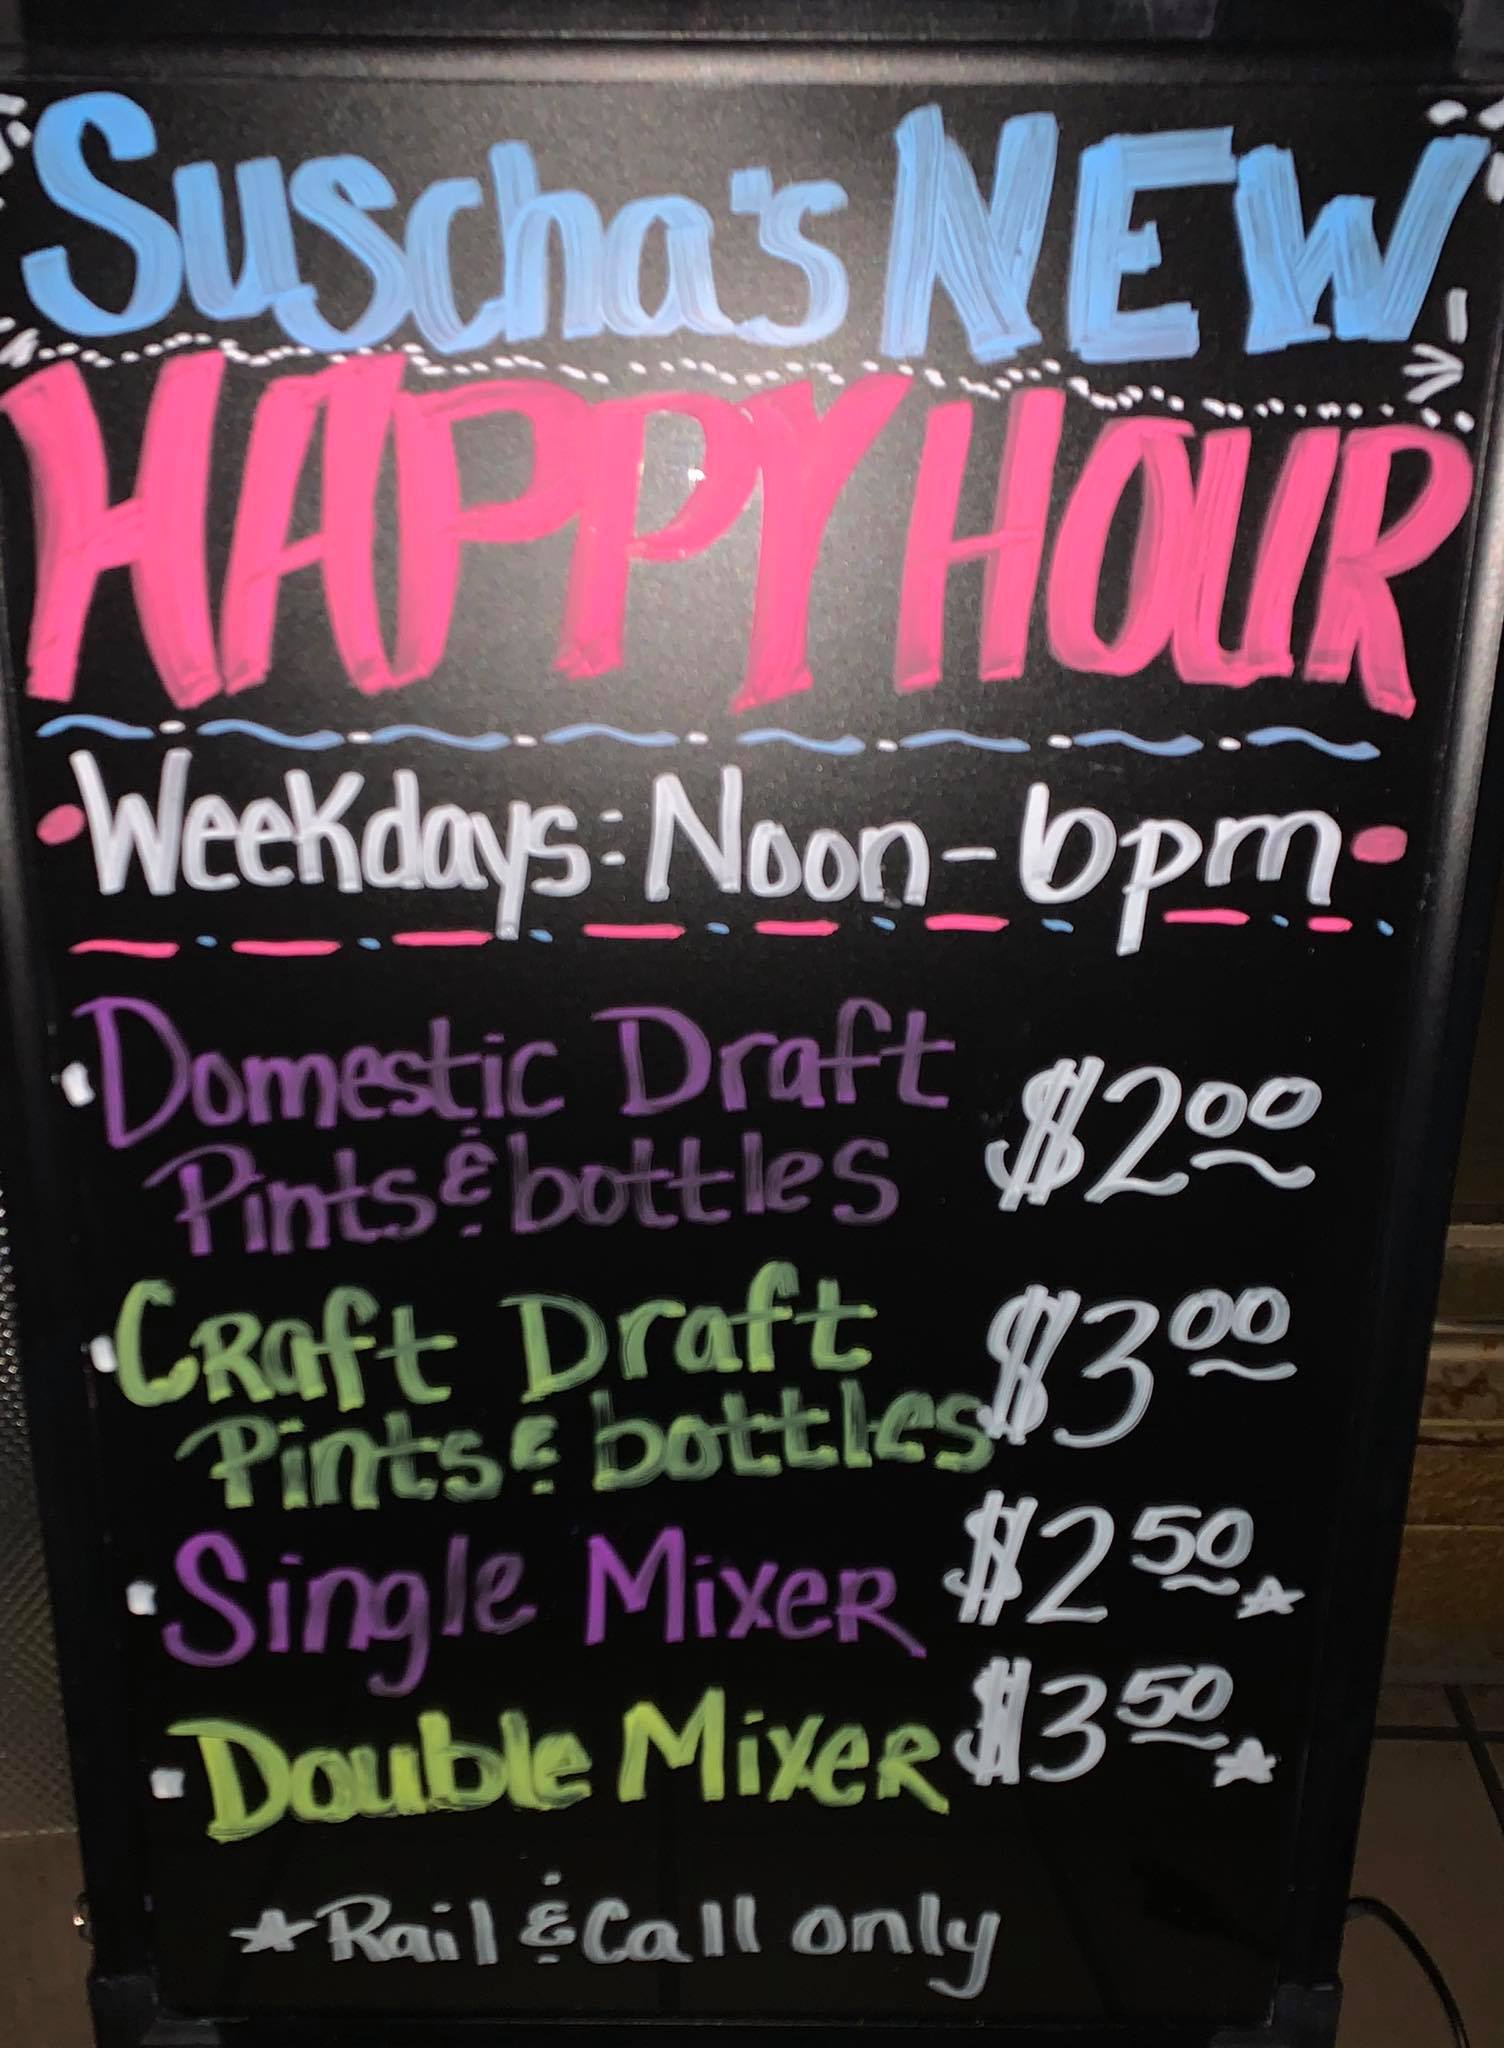 Suscha's NEW
HAPPY HOUR
Weekdays: Noon - 6pm
Domestic Draft
Pints & bottles $2.00
Craft Draft
Pints & bottles $3.00
Single Mixer $2.50*
Double Mixer $3.50*
*Rail & Call only